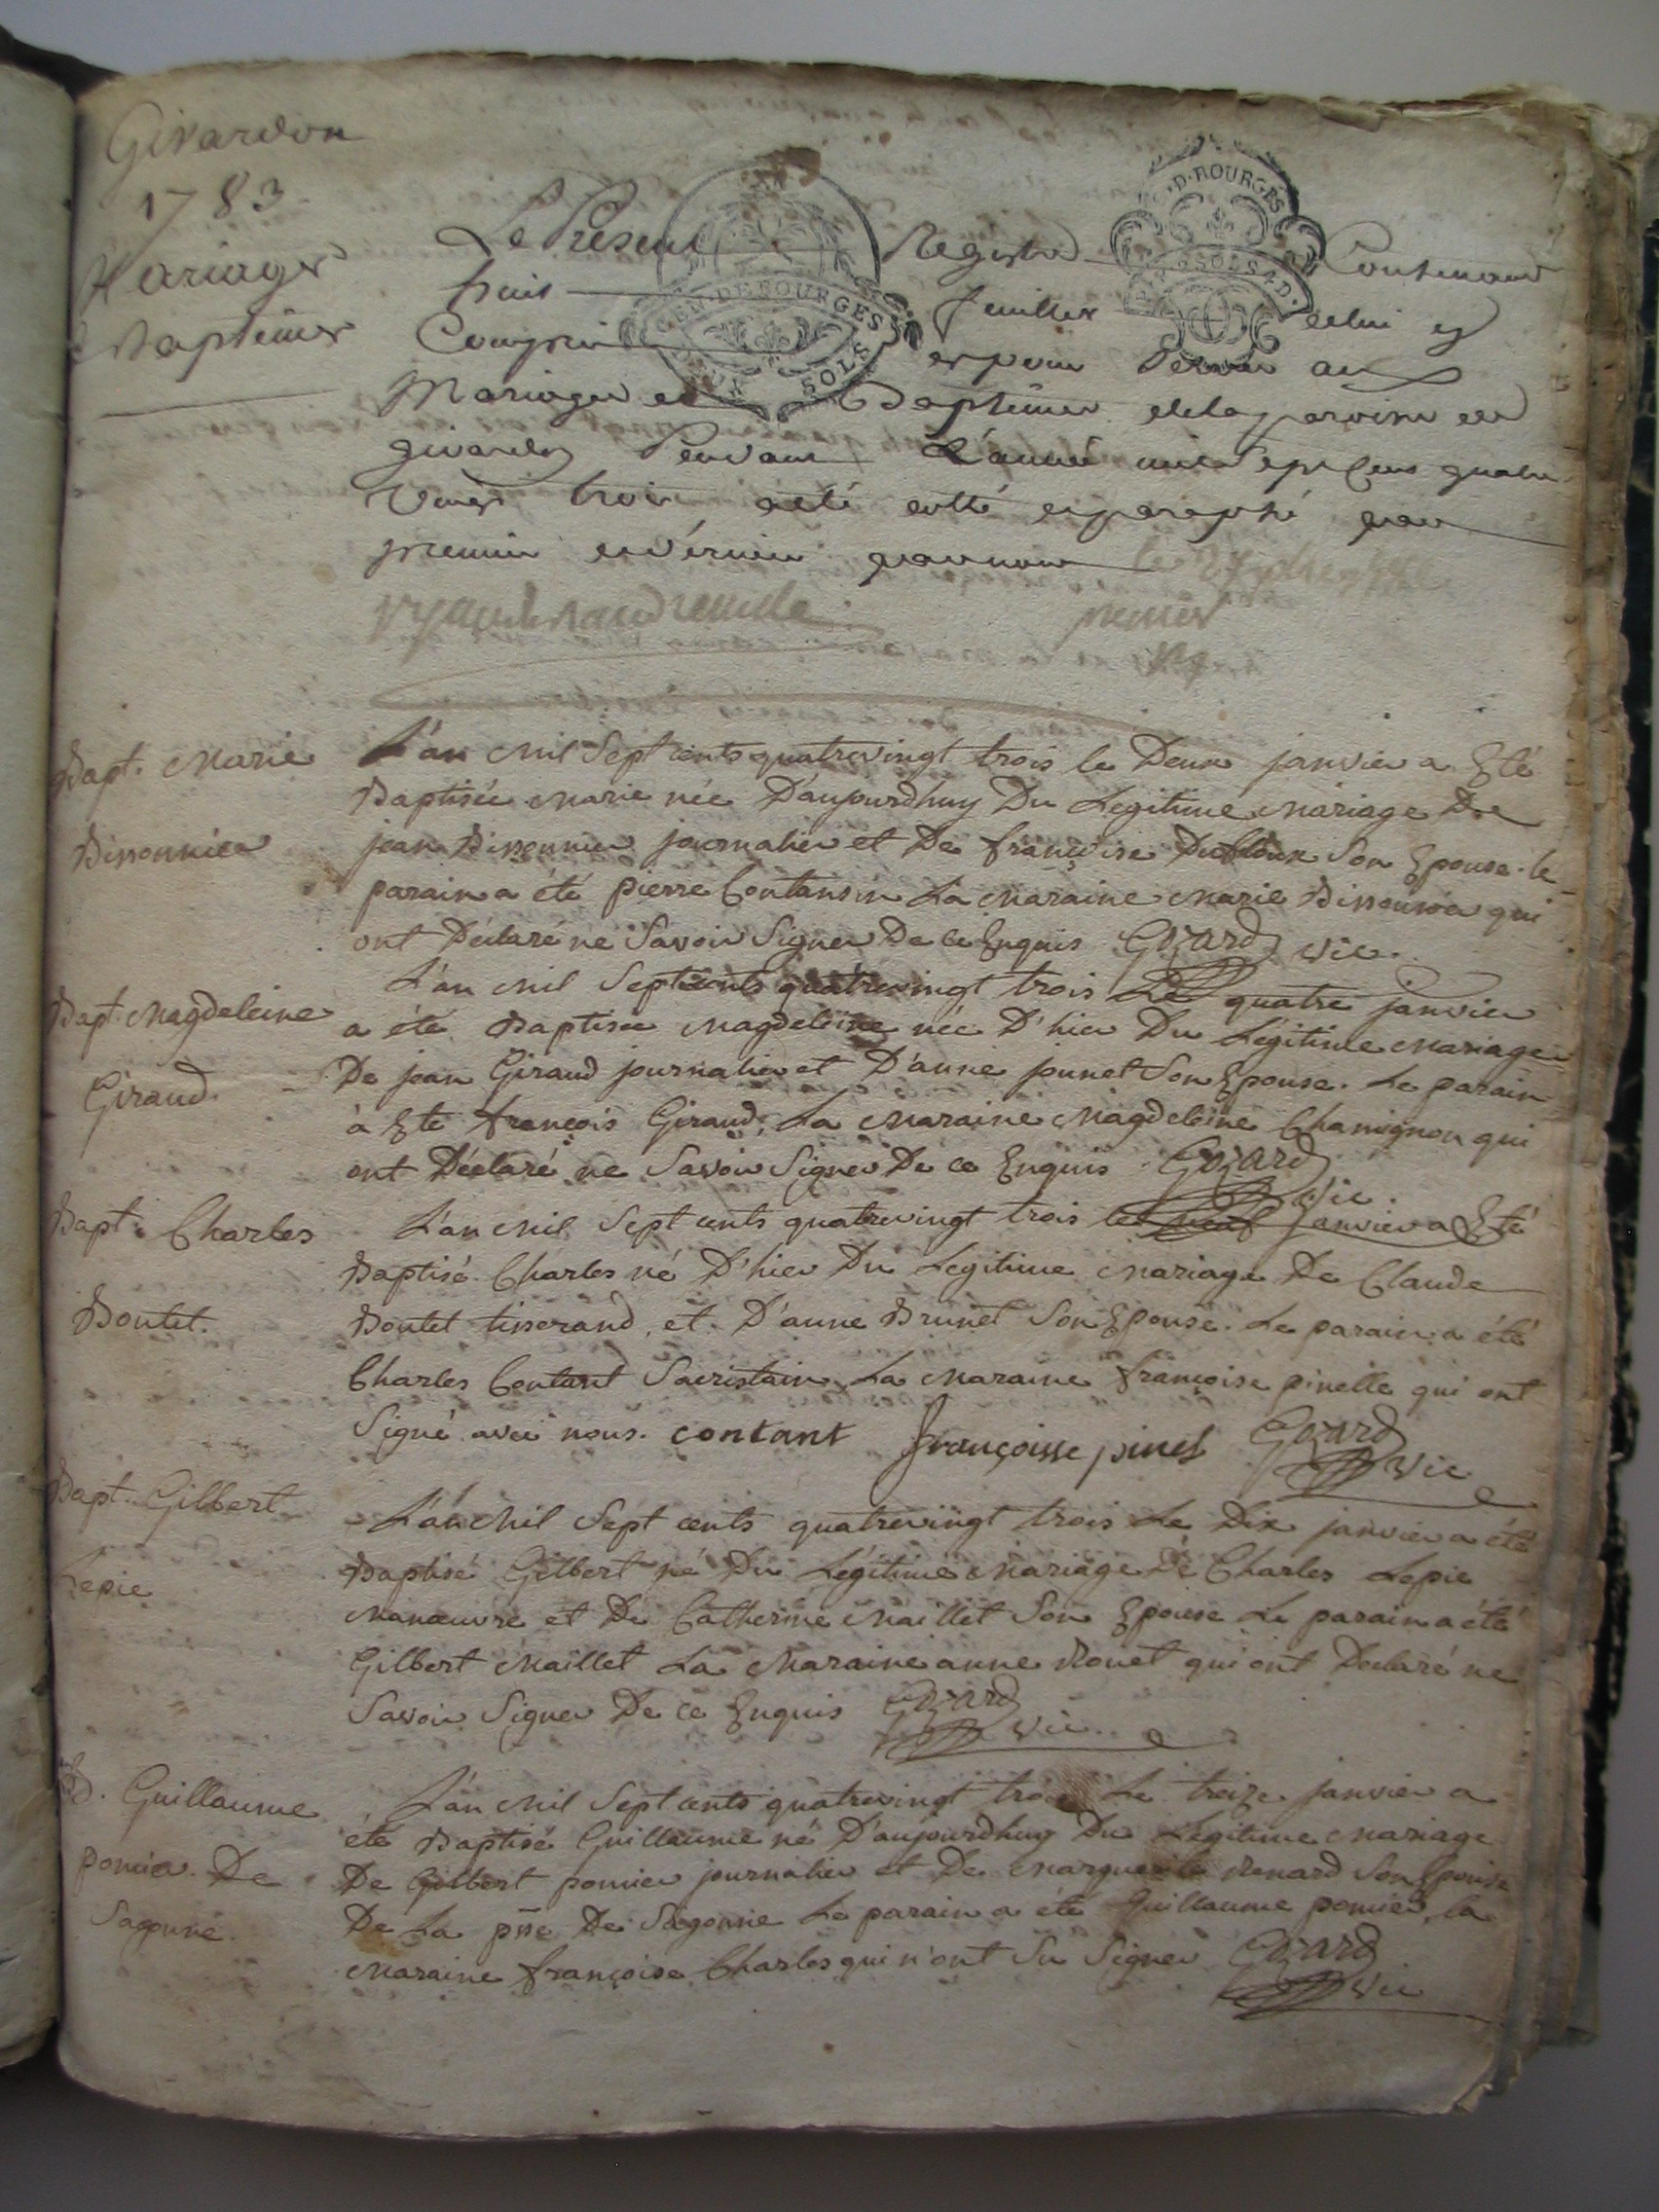 Givardon
1783
Mariages
Baptêmes
GEN. DE BOURGES
DEUX SOLS
G. D. BOURGES
Le Présent Registre Contenant
huit feuillets celui cy
Compris et pour servir aux
Mariages et Baptêmes de la paroisse de
givardon Pendant L'année mil Sept Cens quatre
Vingt trois a eté cotté et paraphé par
premier et dernier par nous
premier
Bapt. Marie
Bissonnier
L'an Mil Sept cents quatrevingt trois le Deux janvier a Eté
Baptisée Marie née D'aujourdhuy Du Legitime Mariage De
jean Bissonnier journalier et De françoise Son Epouse. le
parain a été pierre Contansin La Maraine Marie Bissonnier qui
ont Déclaré ne Savoir Signer De ce Enquis Gozard vic.
Bapt. Magdeleine
Giraud.
L'an Mil Sept cents quatrevingt trois Le quatre janvier
a été Baptisée Magdeleine née D'hier Du Légitime Mariage
De jean Giraud journalier et D'anne jounet Son Epouse. Le parain
à Eté françois Giraud, La Maraine Magdeleine Chamignon qui
ont Déclaré ne Savoir Signer De ce Enquis. Gozard
vic.
Bapt. Charles
Boutet.
L'an Mil Sept cents quatrevingt trois le neuf Janvier a Eté
Baptisé Charles né D'hier Du Legitime Mariage De Claude
Boutet tisserand, et D'anne Brunet Son Epouse. Le parain a été
Charles Contant Sacristain, La Maraine françoise pinelle qui ont
Signé avec nous. contant françoisse pinel Gozard
vic
Bapt. Gilbert
Lepie
L'an Mil Sept cents quatrevingt trois Le Dix janvier a été
Baptisé Gilbert né Du Légitime Mariage De Charles Lepie
Manœuvre et De Catherine Maillet Son Epouse Le parain a été
Gilbert Maillet La Maraine anne Rouet qui ont Declaré ne
Savoir Signer De ce Enquis Gozard
vic.
B. Guillaume
pomier. De
Sagonne.
L'an Mil Sept cents quatrevingt trois Le treize janvier a
eté Baptisé Guillaume né D'aujourdhuy Du Légitime Mariage
De Gilbert pomier journalier et De Marguerite Renard Son Epouse
De La psse De Sagonne Le parain a été Guillaume pomier, la
Maraine françoise Charles qui n'ont Su Signer Gozard
vic